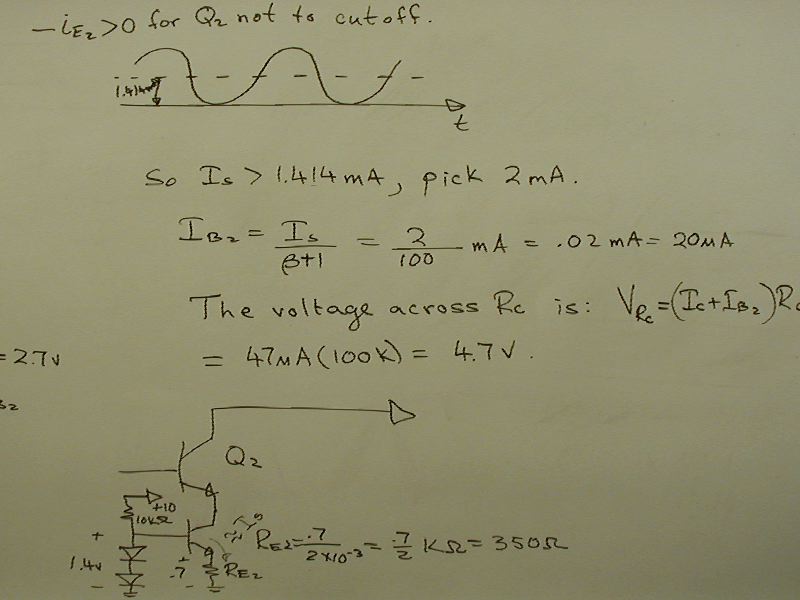 – iE2 > 0 for Q2 not to cutoff.
1.414
t
So Is > 1.414 mA, pick 2 mA.
IB2 = Is / β+1 = 2 / 100 mA = .02 mA = 20 μA
The voltage across Rc is: VRc = (Ic + IB2) Rc
= 2.7 v
= 47 μA (100K) = 4.7 V.
B2
Q2
+10
10KΩ
+
1.4v
–
+
.7
–
RE2
RE2 = .7 / 2×10-3 = .7 / 2 KΩ = 350Ω